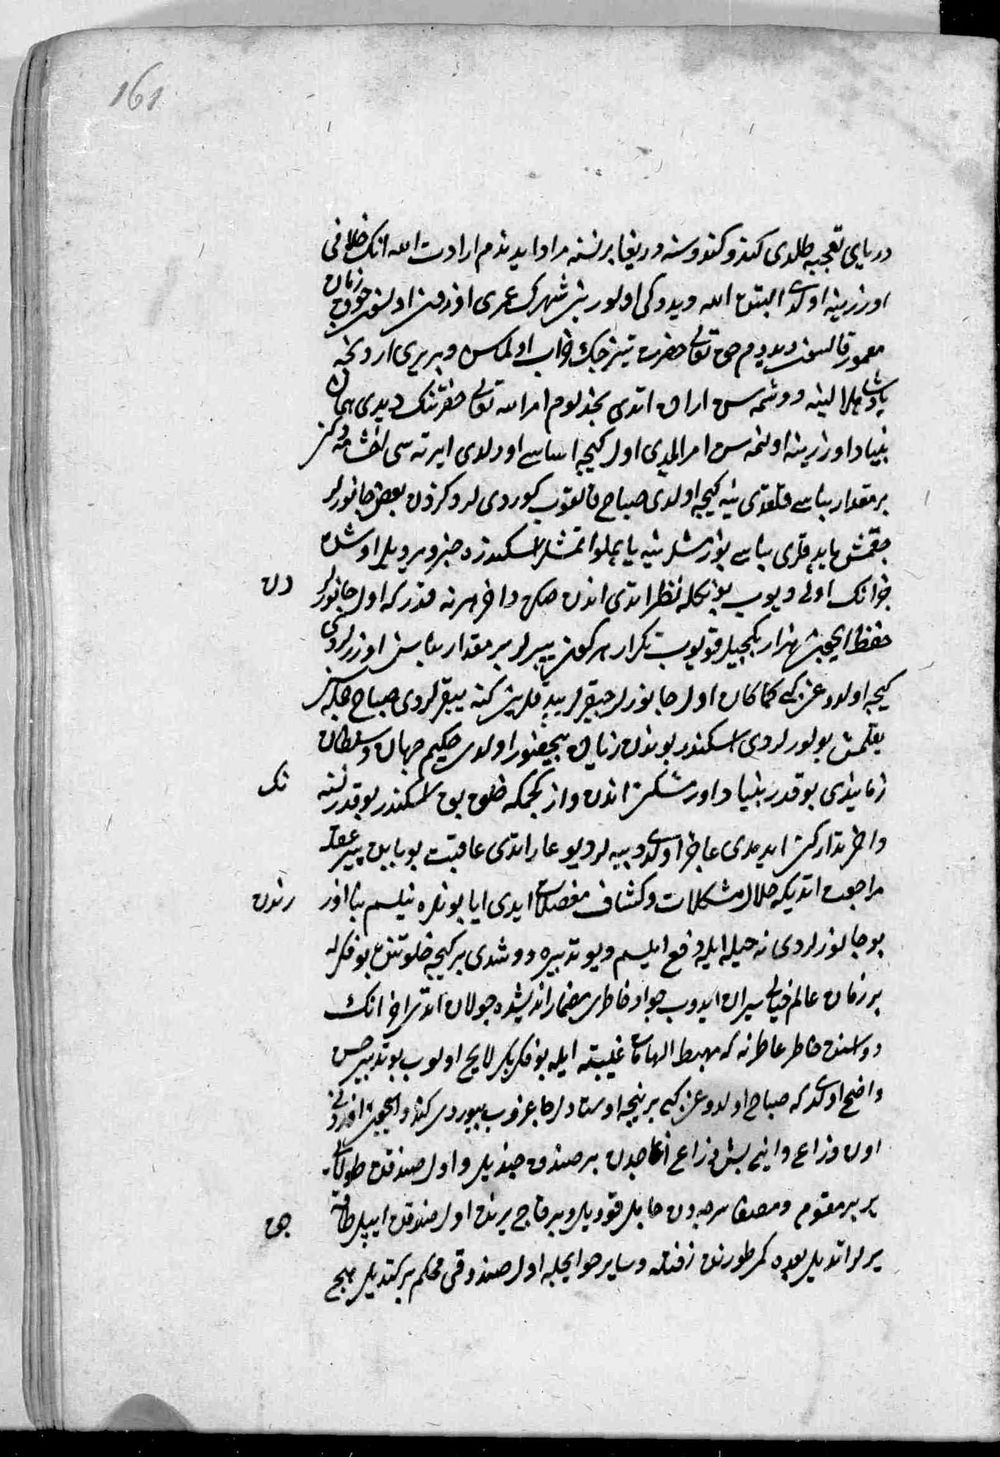 161
دریای تعجبه طلدی کندو کندوسنه دریغا بر نسنه مراد ایدندم ارادت الله انک خلافی
اوزرینه اولدی البته الله دیدوکی اولور بن شهرک عمری اوزون اولسون چوق زمان
معمور قالسون دیدم حق تعالی حضرت تیزجک خراب اولماسن ویریری ار دخی
پادشاهلار الینه دوشمه سن اراده اتدی بخدلوم امر الله تعالی حضرتنک دیدی همان
بنیاد اوزرینه اولنمه سن امر ایلدی اول کیجه اساسی اورلدی ایرته سی اخشامه دکز
بر مقدار بناسی قلقدی ینه کیجه اولدی صباح قالقوب کوردی لر دکزدن بعض جانورلر
چقمش یاپدقلری بناسی بوزمشلر ینه یابملو اتمشلر اسکندره خبر ویردیلر اوشده
خرانک اولی دیوب بو شکله نظر اتدی اندن صکره داخی هر نه قدر که اول جانورلر دن
حفظ ایچون هزار بکجیلر قویوب تکرار هر کون یپیرلر بر مقدار بناسن اوزرلردی
کیجه اولدوغن کبی کماکان اول جانورلر چیقرلر یپدقلرین کنه ییقرلردی صباح جمله سن
یقلمش بولورلردی اسکندر بوندن زیاده بیحضور اولدی حکیم جهان و سلطان
زمانیدی بو قدر بنیاد اورمشکن اندن واز کچمکه خلق بو اسکندر بو قدر نسنه نک
داخی تدارکن ایدمدی عاجز اولدی دییه لر دیو عار اتدی عاقبت بو بابده پیر عقله
مراجعت اتدیکه حلال مشکلات و کشاف معضلات ایدی ایا بونلره نیلسم بنا اوزرندن
بو جانورلردی نه حیله ایله دفع ایلسم دیو تدبیره دوشدی بر کیجه خلوتنده بو فکرله
بر زمان عالم خیالی سیران ایدوب جواد خاطری مضمار اندیشه ده جولان اتدی اخر انک
دولسنده خاطر عاطرنه که مهبط الهامات غیبیته ایله بو فکر بکر لایح اولوب بو تدبیر حسن
واضح اولدی که صباح اولدوغن کبی بر نیجه اوستادلر چاغروب بیوردی کندو ایچون اوزونی
اون ذراع و اینی بش ذراع اغاجدن بر صندوق چندیلر و اول صندوقن طولانی
یر یر مقتوم و مصفا سرچه دن جاملر قودیلر و بر قاچ یردن اول صندوقن ایپلر طاقه جق
یرلر اتدیلر بعده کمی طورنده زفتله و سایر حوایجله اول صندوقی محکم برکتدیلر هیچ